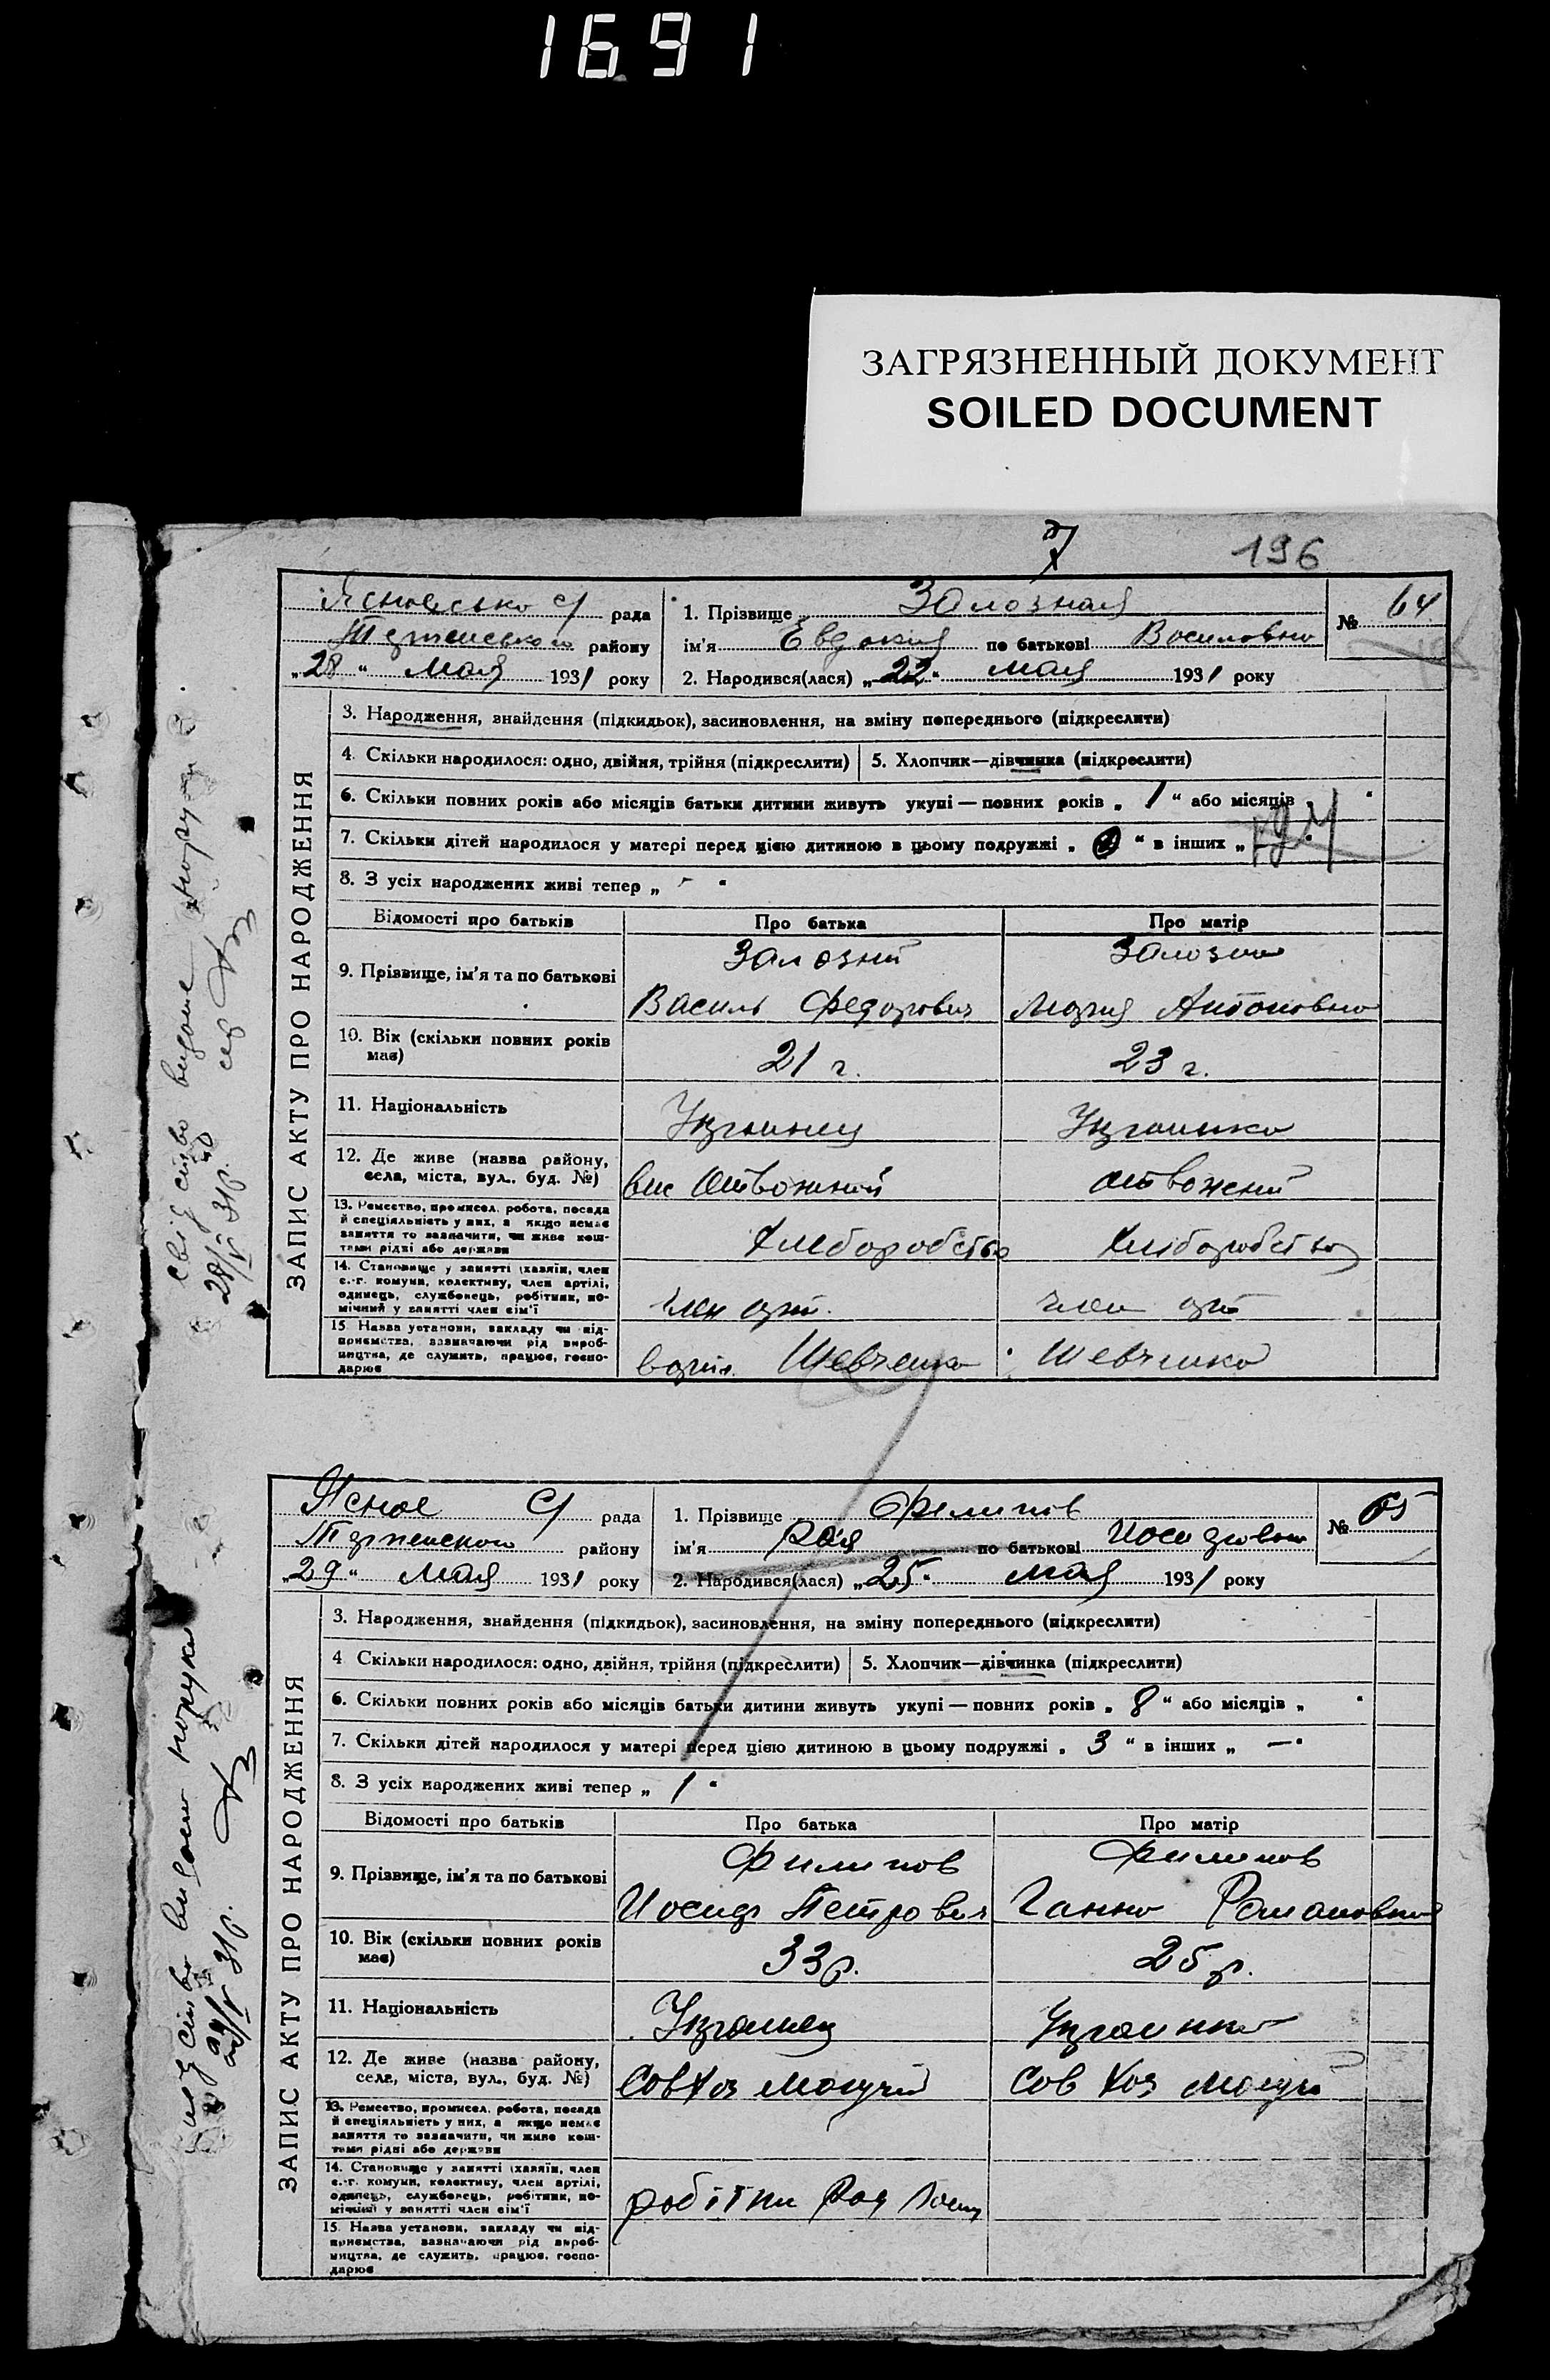 1691
ЗАГРЯЗНЕННЫЙ ДОКУМЕНТ
SOILED DOCUMENT
196
рада
району
„28“ Мая 1931 року
1. Прізвище Залозная
ім'я Евдокия по батькові Василовна
2. Народився(лася) „22“ мая 1931 року
№ 64
ЗАПИС АКТУ ПРО НАРОДЖЕННЯ
3. Народження, знайдення (підкидьок), засиновлення, на зміну попереднього (підкреслити)
4. Скільки народилося: одно, двійня, трійня (підкреслити) 5. Хлопчик—дівчинка (підкреслити)
6. Скільки повних років або місяців батьки дитини живуть укупі — повних років „ 1 “ або місяців
7. Скільки дітей народилося у матері перед цією дитиною в цьому подружжі „ “ в інших „
8. З усіх народжених живі тепер „ - “
Відомості про батьків Про батька Про матір
9. Прізвище, ім'я та по батькові
Залозний
Василь Федорович
Мария Антоновна
10. Вік (скільки повних років
має)
21 г. 23 г.
11. Національність
Украинец Украинка
12. Де живе (назва району,
села, міста, вул., буд. №)
13. Ремество, промисел, робота, посада
й спеціяльність у них, а якщо немає
заняття то зазначити, чи живе кош-
тами рідні або держави
Хлеборобство Хлiборобство
14. Становище у занятті (хазяїн, член
с.-г. комуни, колективу, член артілі,
одинець, службовець, робітник, по-
мічний у занятті член сім'ї
член арт. член арт
15. Назва установи, закладу чи під-
приємства, зазначаючи рід вироб-
ництва, де служить, працює, госпо-
дарює
Шевченка Шевченка
Ясное с/ рада
району
„29“ Мая 1931 року
1. Прізвище Филипов
ім'я Рая по батькові Иосифовна
2. Народився(лася) „25“ мая 1931 року
№ 65
ЗАПИС АКТУ ПРО НАРОДЖЕННЯ
3. Народження, знайдення (підкидьок), засиновлення, на зміну попереднього (підкреслити)
4 Скільки народилося: одно, двійня, трійня (підкреслити) 5. Хлопчик—дівчинка (підкреслити)
6. Скільки повних років або місяців батьки дитини живуть укупі — повних років „ 8 “ або місяців „ “
7. Скільки дітей народилося у матері перед цією дитиною в цьому подружжі „ 3 “ в інших „ — “
8. З усіх народжених живі тепер „ 1 “
Відомості про батьків Про батька Про матір
9. Прізвище, ім'я та по батькові
Филипов Филипов
Иосиф Петрович Ганна Романовна
10. Вік (скільки повних років
має)
33 р. 25 р.
11. Національність
Украинец Украинка
12. Де живе (назва району,
села, міста, вул., буд. №)
Совхоз Могучий Сов хоз Могучй
13. Ремество, промисел, робота, посада
й спеціяльність у них, а якщо немає
заняття то зазначити, чи живе кош-
тами рідні або держави
14. Становище у занятті (хазяїн, член
с.-г. комуни, колективу, член артілі,
одинець, службовець, робітник, по-
мічний у занятті член сім'ї
робітни
15. Назва установи, закладу чи під-
приємства, зазначаючи рід вироб-
ництва, де служить, працює, госпо-
дарює